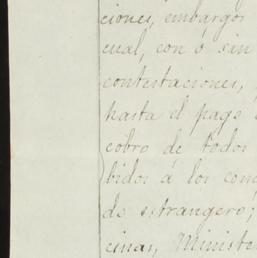 ciones, embargos
cual, con ó sin
contestaciones,
hasta el pago
cobro de todos
bidos á los com
de estrangero;
cinas, Ministe